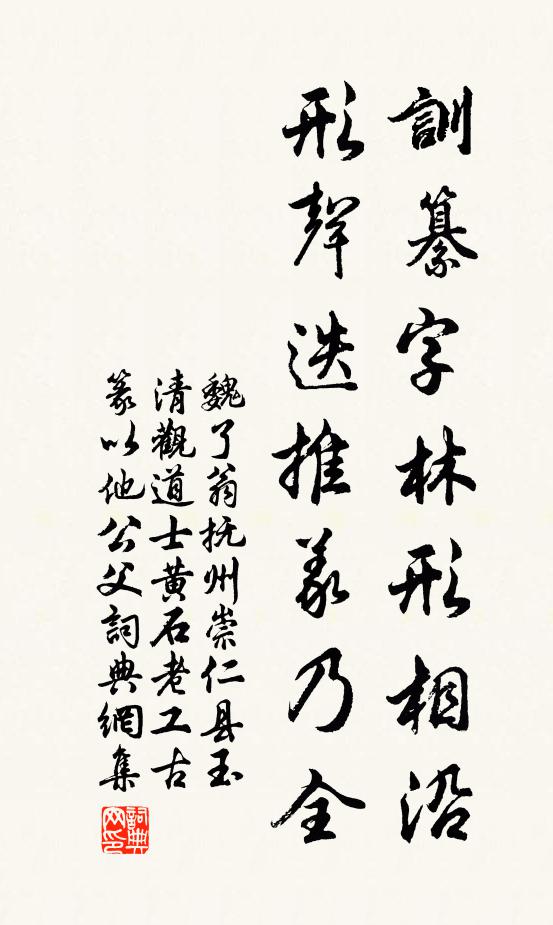 訓纂字林形相沿
形聲迭推義乃全
魏了翁抚州崇仁县玉
清觀道士黄石老工古
篆以他公父詞典網集
詞典网印